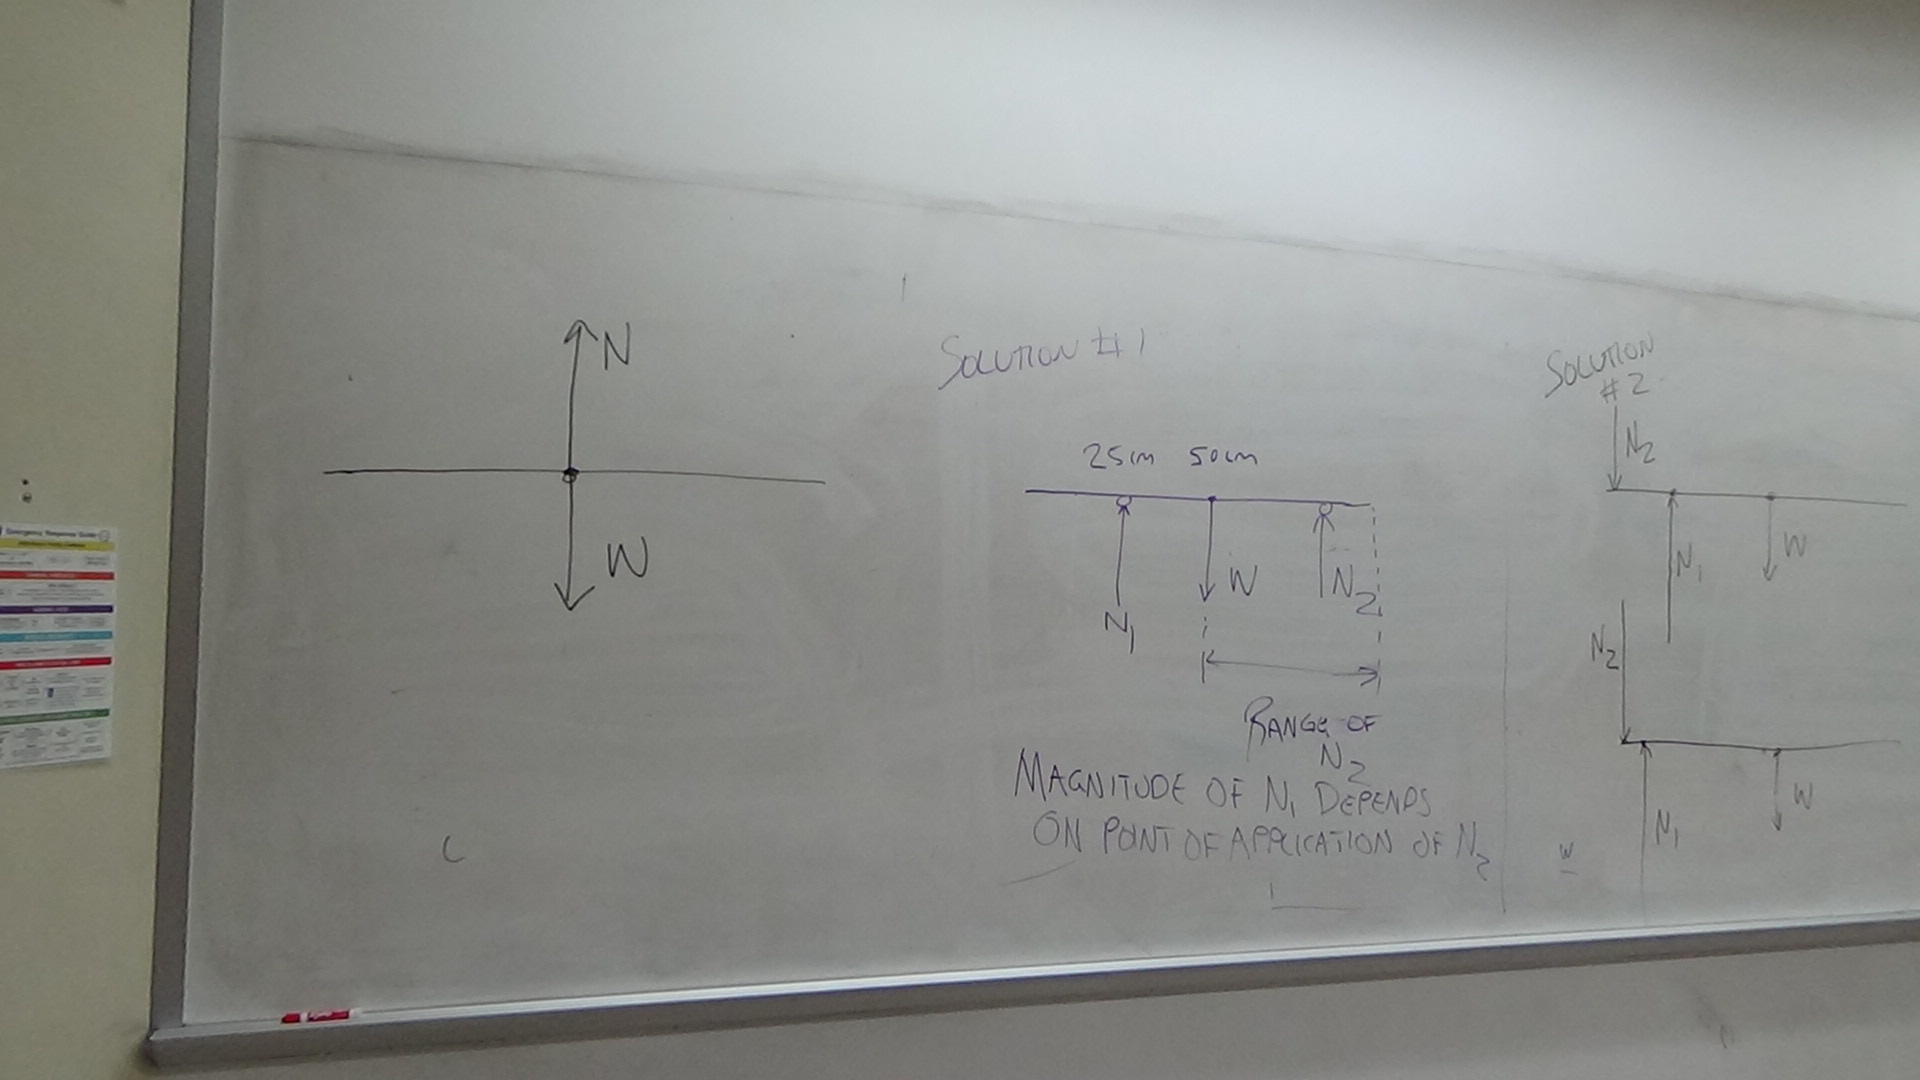 N
W
SOLUTION #1
25cm 50cm
N1
W
N2
RANGE OF
N2
MAGNITUDE OF N1 DEPENDS
ON POINT OF APPLICATION OF N2
SOLUTION
#2
N2
N1
W
N2
N1
W
W
Emergency Response Guide